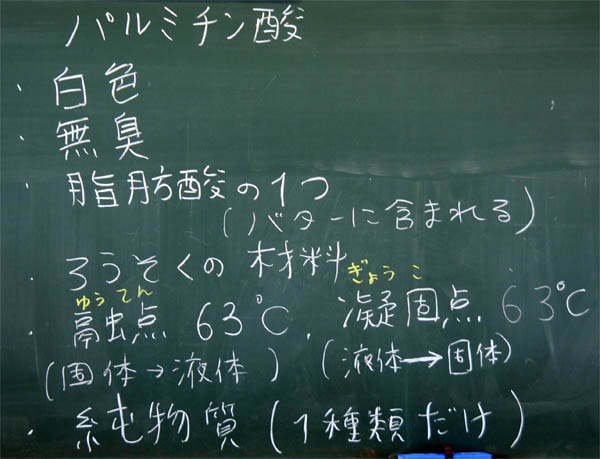 パルミチン酸
・白色
・無臭
・脂肪酸の1つ
(バターに含まれる)
・ろうそくの材料
ゆうてん ぎょうこ
・融点 63℃ . 凝固点 63℃
(固体→液体) (液体→固体)
・純物質(1種類だけ)